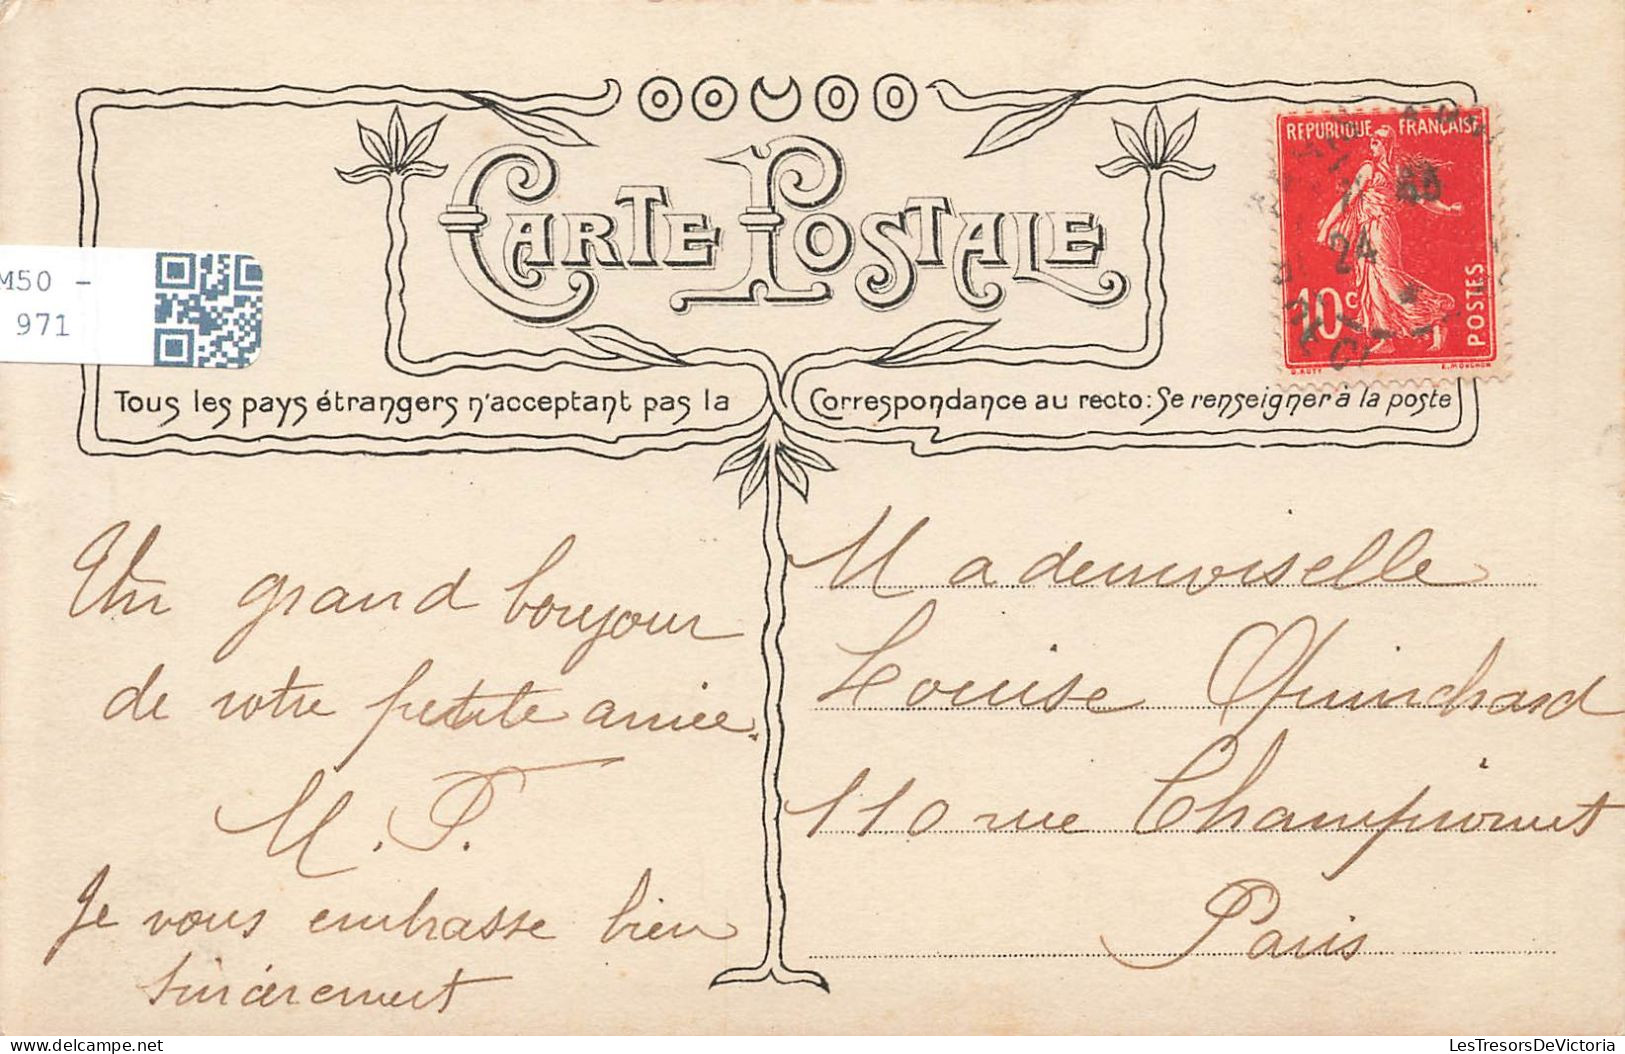 CARTE POSTALE
REPUBLIQUE FRANÇAISE
24
10c
POSTES
O. ROTY
E. MOUCHON
M50 -
971
Tous les pays étrangers n'acceptant pas la Correspondance au recto: Se renseigner à la poste
Un grand bonjour
de votre petite amie.
M. P.
Je vous embrasse bien
sincèrement
Mademoiselle
Louise Quinchard
110 rue Championnet
Paris
delcampe.net
LesTresorsDeVictoria